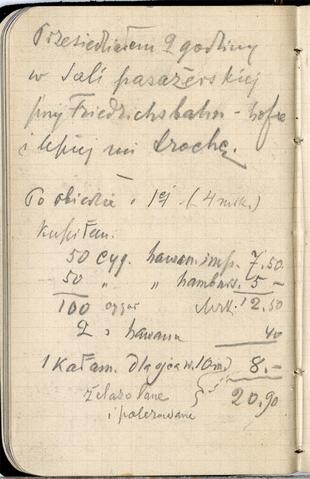 Przesiedziałem 2 godziny
w Sali pasażerskiej
przy Friedrichsbahn-hofie
i lepiej mi trochę.
Po obiedzie o 1ej (4 mrk.)
kupiłem:
50 cyg. hawan. imp. 7.50
50 " " hamburs. 5 –
100 cygar Mrk. 12.50
2 " hawana 40
1 Kałam. dla ojca w. 10 8.–
żelazo lane
i polerowane } 20.90